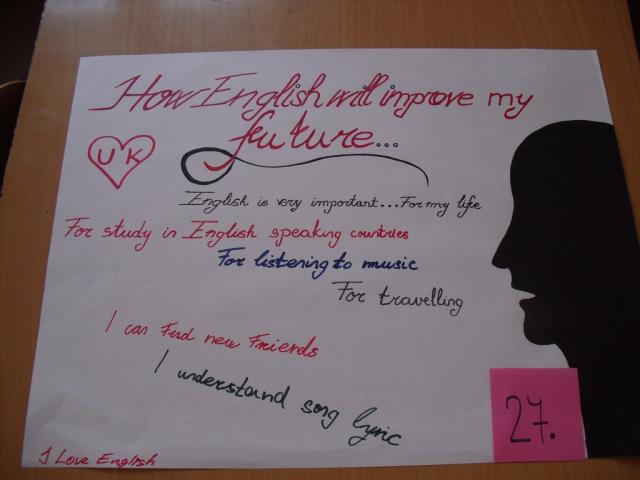 How English will improve my
future...
UK
English is very important...For my life
For study in English speaking countries
For listening to music
For travelling
I can Find new Friends
I understand song lyric
27.
I Love English